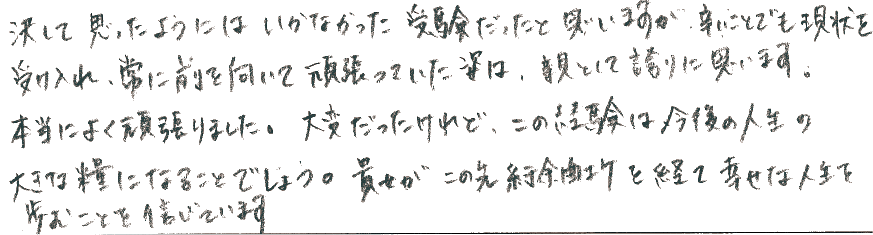 決して思ったようにはいかなかった受験だったと思いますが、辛いことでも現状を
受け入れ、常に前を向いて頑張っていた姿は、親として誇りに思います。
本当によく頑張りました。大変だったけれど、この経験は今後の人生の
大きな糧になることでしょう。貴女がこの先紆余曲折を経て幸せな人生を
歩むことを信じています